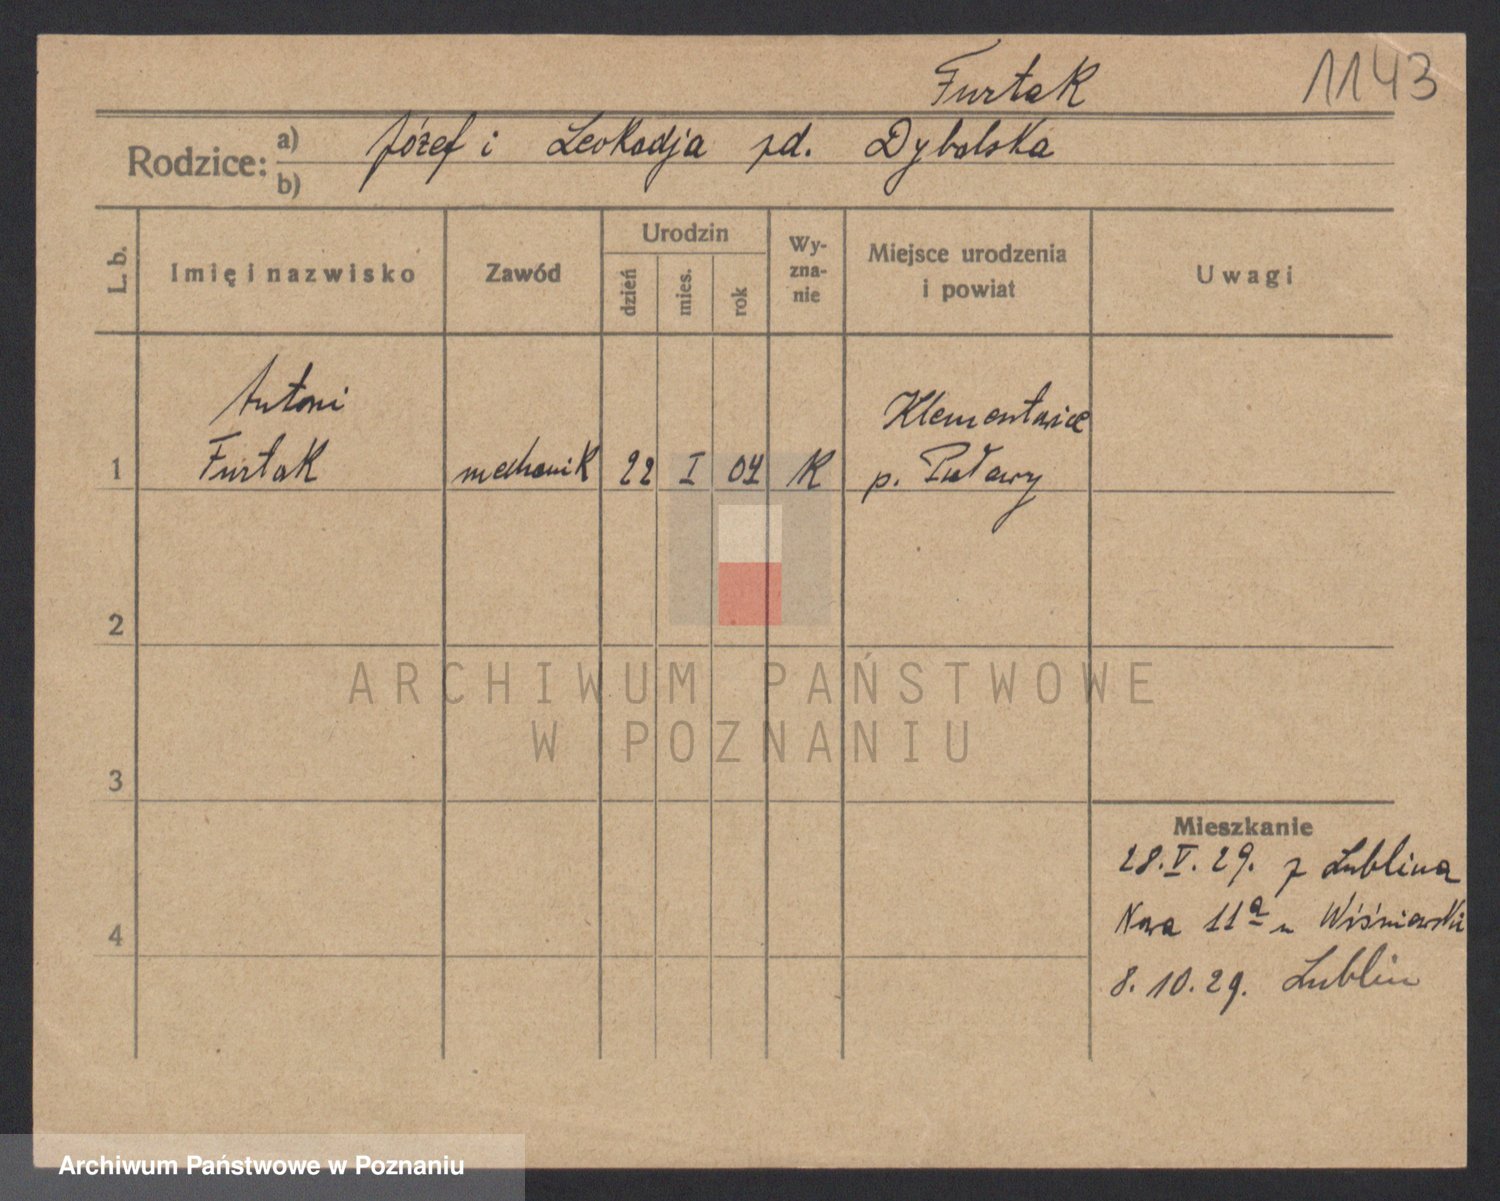 Furtak
1143
Rodzice: a) b)
Józef i Leokadja zd. Dybalska
L. b.
Imię i nazwisko
Zawód
Urodzin
dzień
mies.
rok
Wy-
zna-
nie
Miejsce urodzenia
i powiat
Uwagi
1
Antoni
Furtak
mechanik
22
I
04
K
Klementowice
p. Puławy
2
3
4
Mieszkanie
28.V.29. z Lublina
Nowa 11a u Wiśniewski
8.10.29. Lublin
ARCHIWUM PAŃSTWOWE
W POZNANIU
Archiwum Państwowe w Poznaniu